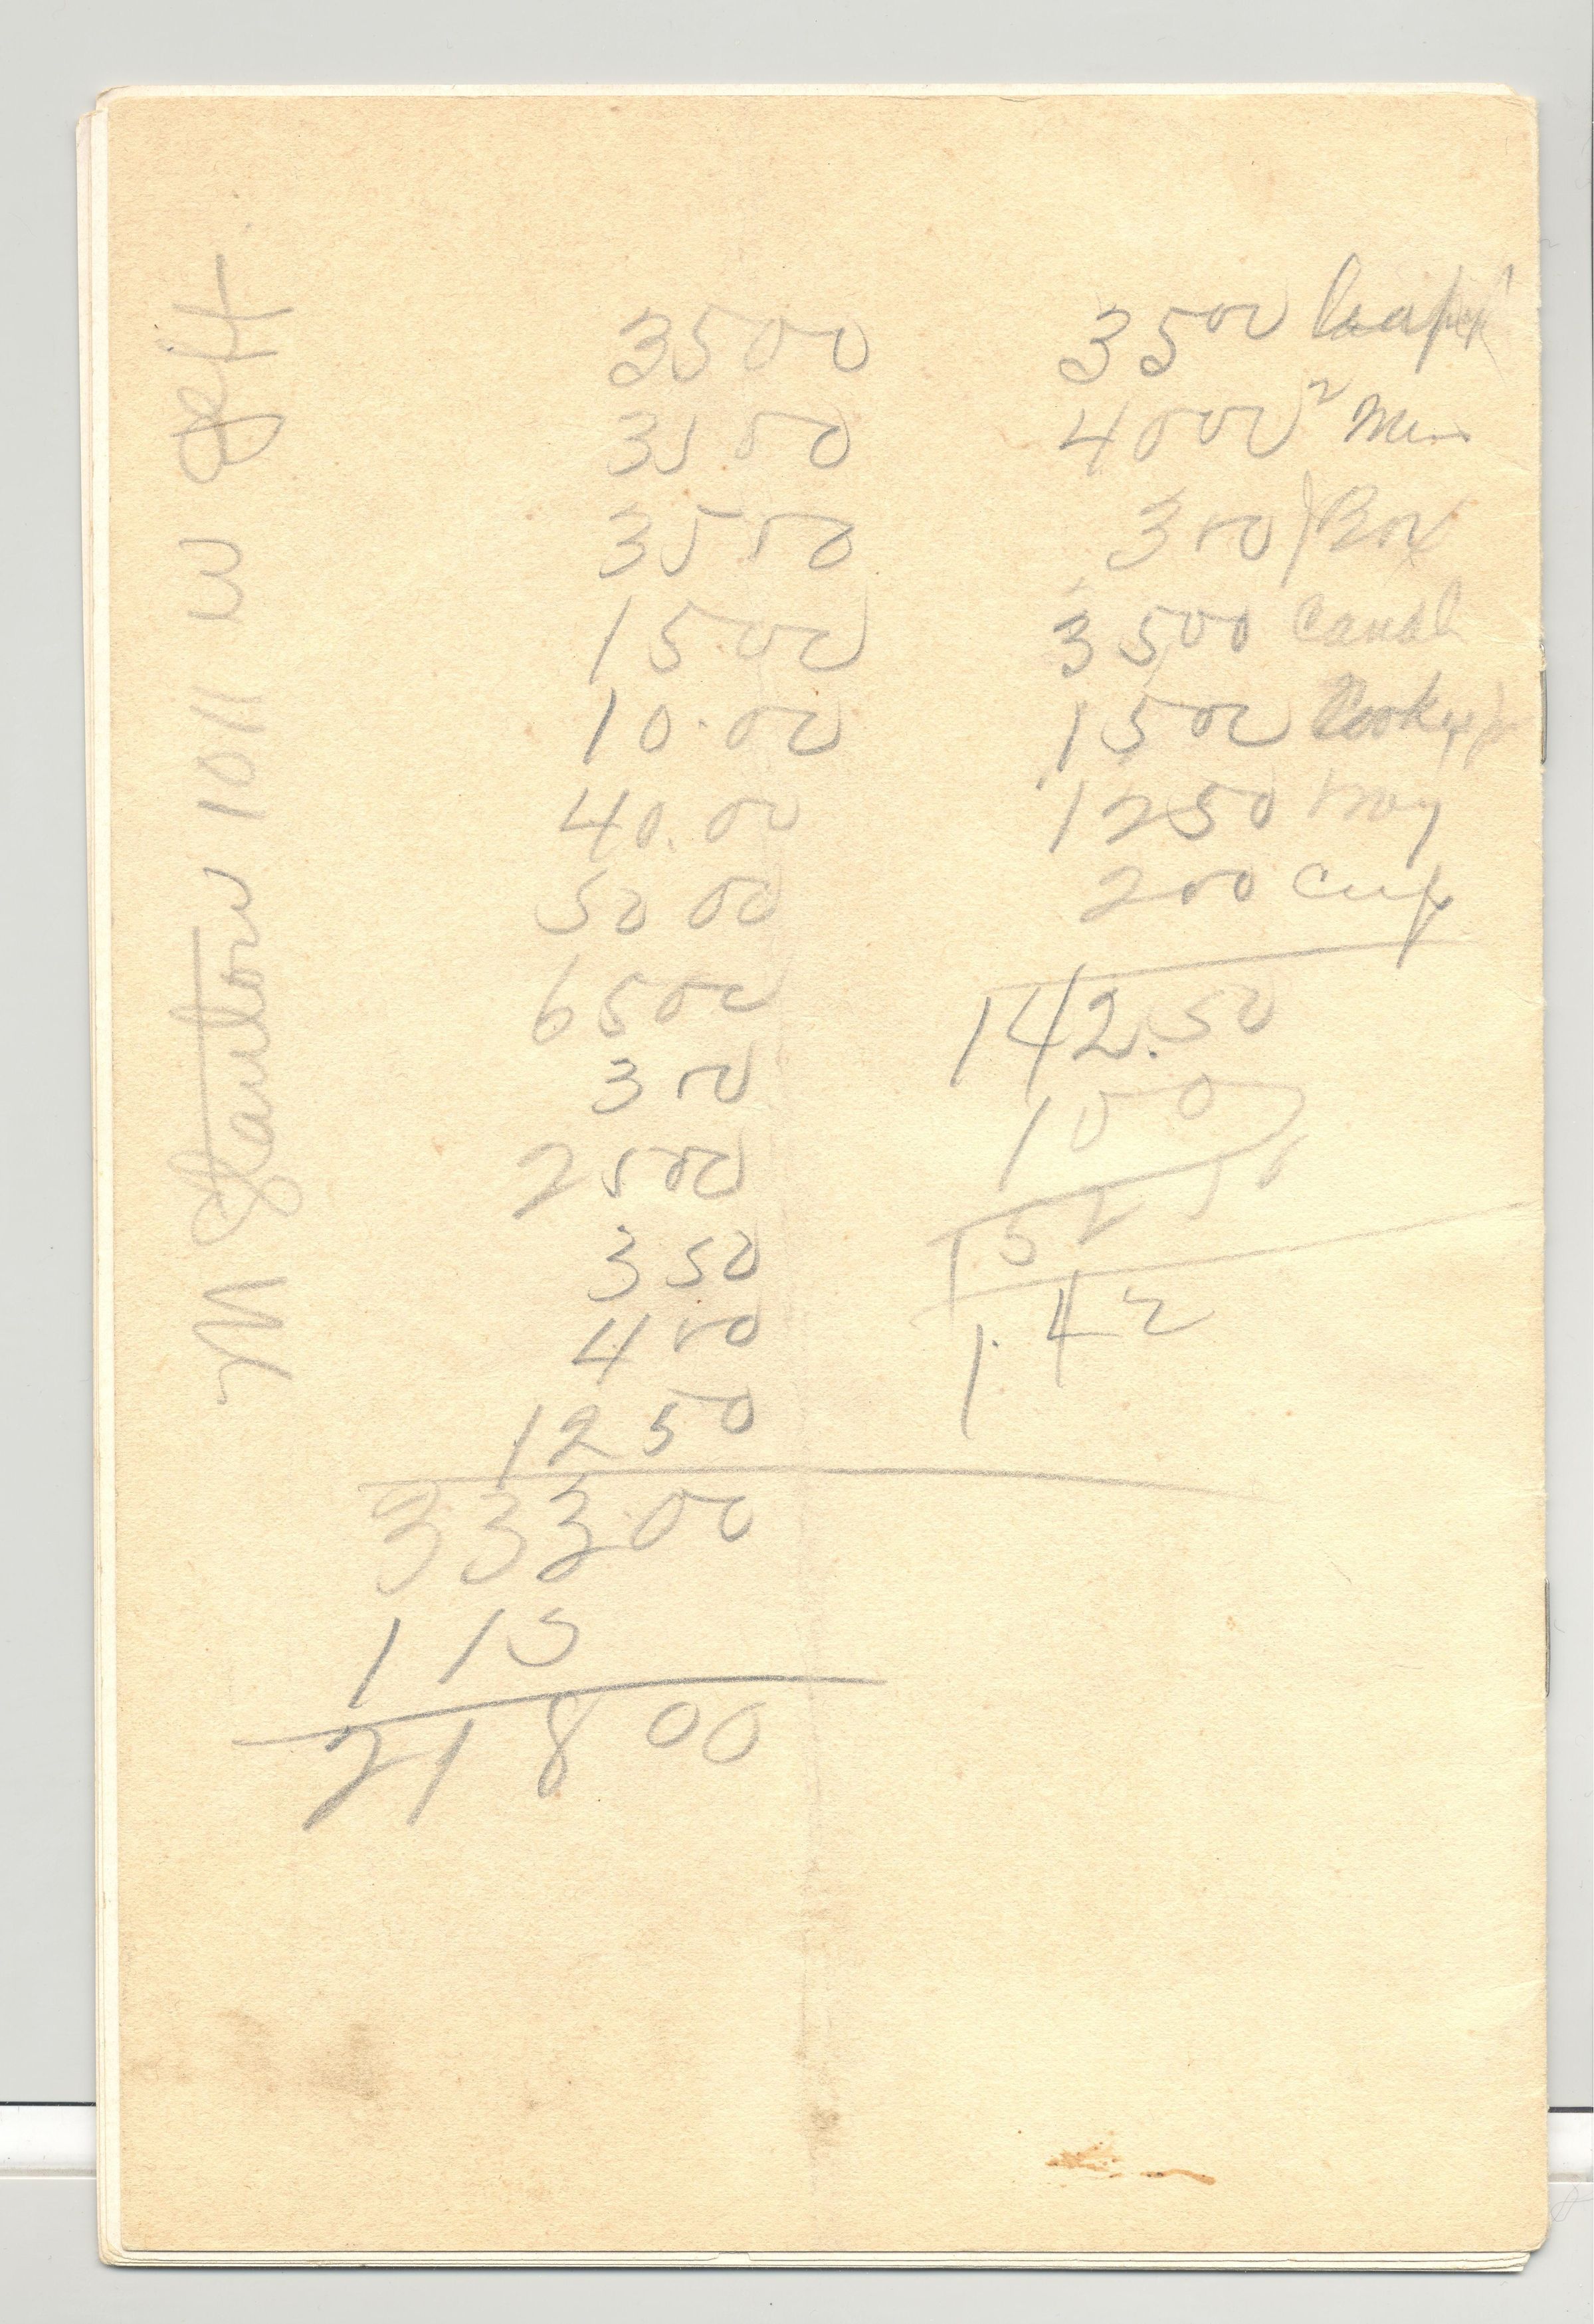 M Stanton 1011 W
3500
3500
3500
1500
10.00
40.00
5000
6500
300
2500
350
400
1250
33300
115
21800
3500
4000 2 Men
300 Box
3500 Canal
1500
1250 tray
200 cup
142.50
100
152
1.42